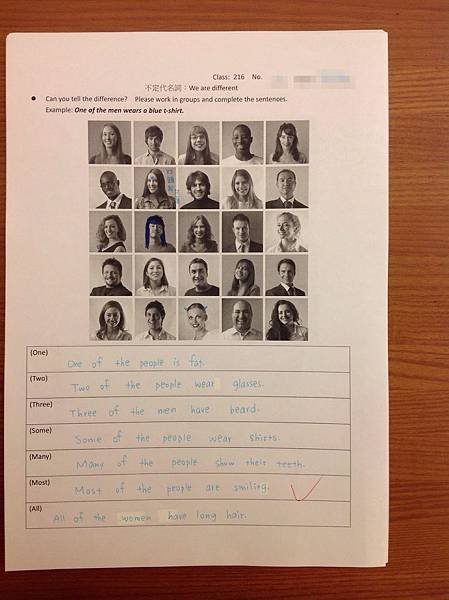 Class: 216 No.
不定代名詞：We are different
● Can you tell the difference? Please work in groups and complete the sentences.
Example: One of the men wears a blue t-shirt.
(One)
One of the people is fat.
(Two)
Two of the people wear glasses.
(Three)
Three of the men have beard.
(Some)
Some of the people wear shirts.
(Many)
Many of the people show their teeth.
(Most)
Most of the people are smiling.
(All)
All of the women have long hair.